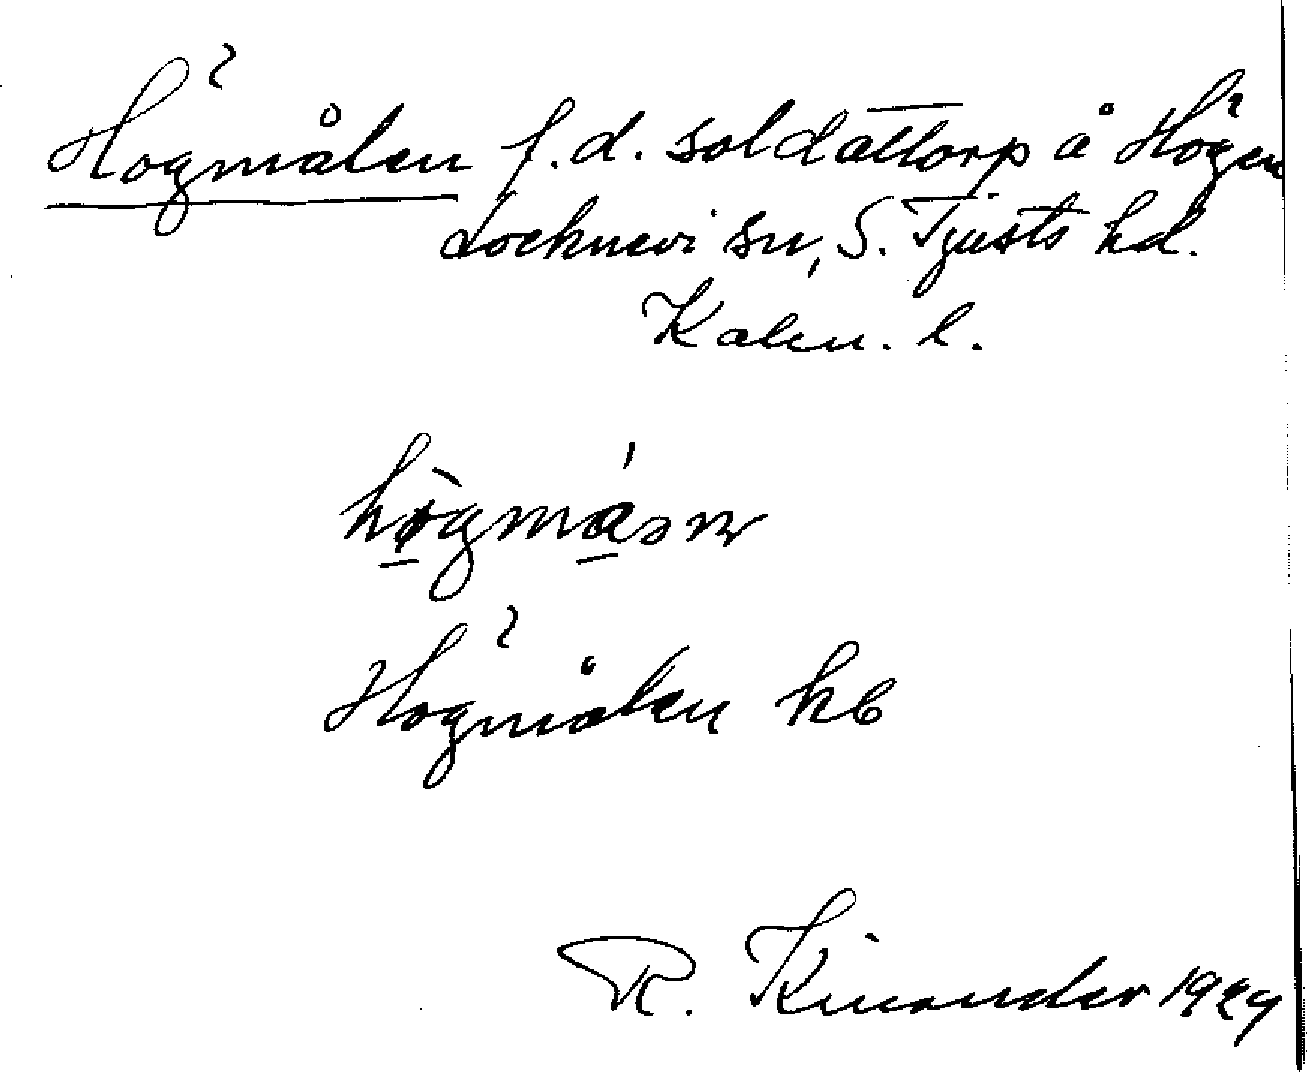 Högmålen f.d. soldattorp å Högen
Locknevi sn, S. Tjusts hd.
Kalm. l.
Högmålen kb
R. Kinander 1929